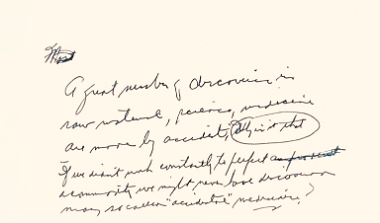 A great number of discoveries in
raw material, science, medicine
are more by accident, Why is it that
If we didn't work constantly to perfect
a community we might never have discovered
many so called "accidental" medicine?